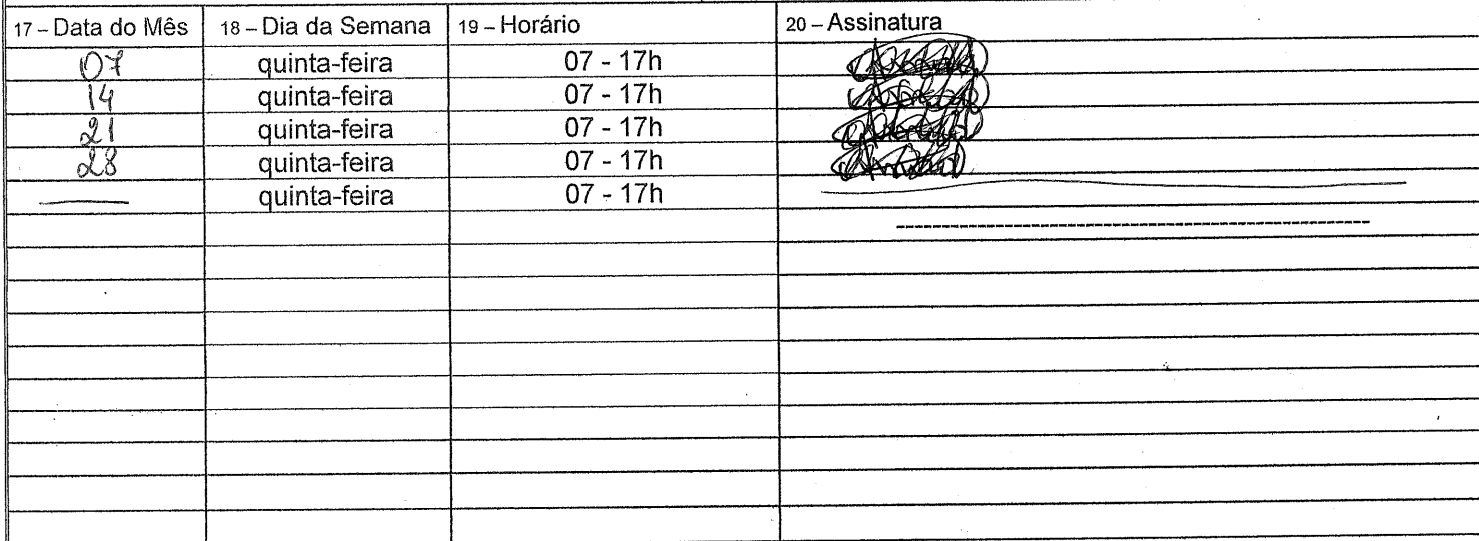 17 – Data do Mês 18 – Dia da Semana 19 – Horário 20 – Assinatura
07 quinta-feira 07 - 17h
14 quinta-feira 07 - 17h
21 quinta-feira 07 - 17h
28 quinta-feira 07 - 17h
quinta-feira 07 - 17h